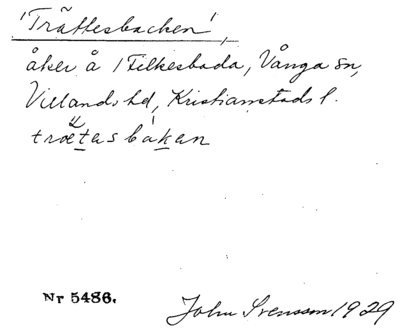 'Trättesbacken',
åker å 1 Filkesboda, Vånga sn,
Villands hd, Kristianstads l.
trœtasbakan
Nr 5486.
John Svensson 1929